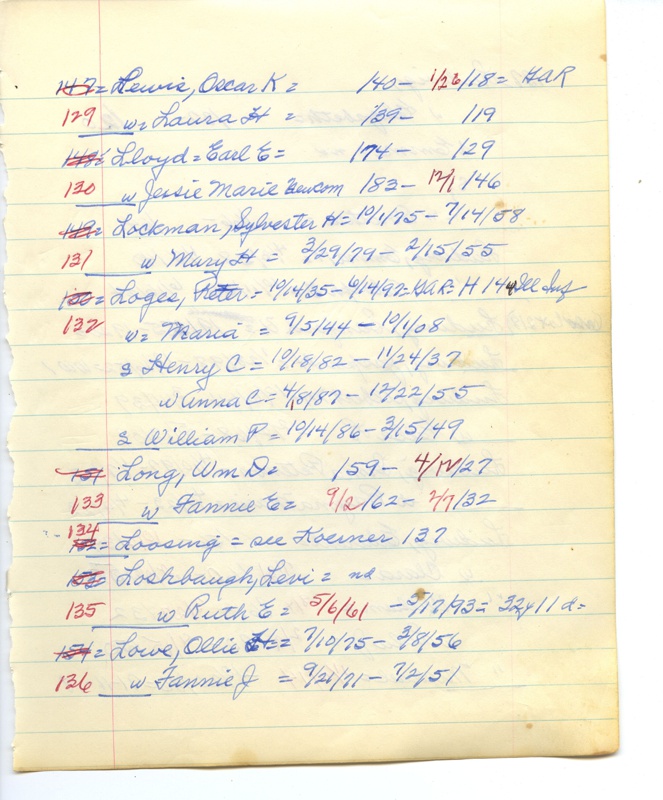 147= Lewis, Oscar K = /40- 1/26/18= GAR
129 w= Laura H = /39- /19
148= Lloyd= Earl E= /74- /29
130 w Jessie Marie Newcom 183- 12/1/46
149= Lockman, Sylvester H= 10/1/75- 7/14/58
131 w Mary H = 3/29/79- 2/15/55
150= Loges, Peter= 10/14/35- 6/14/97=GAR= H 144 Ill Inf
132 w= Maria = 9/5/44- 10/1/08
s Henry C= 10/18/82- 11/24/37
w Anna C= 4/8/87- 12/22/55
s William P= 10/14/86- 3/15/49
151 Long, Wm D= /59- 4/12/27
133 w Fannie E= 9/2/62- 2/7/32
134
152= Loosing = see Koerner 137
153 Loshbaugh, Levi = nd
135 w Ruth E= 5/6/61 -3/17/93= 32y 11 d=
154= Lowe, Ollie H= 7/10/75- 3/8/56
136 w Fannie J = 9/21/71- 7/2/51